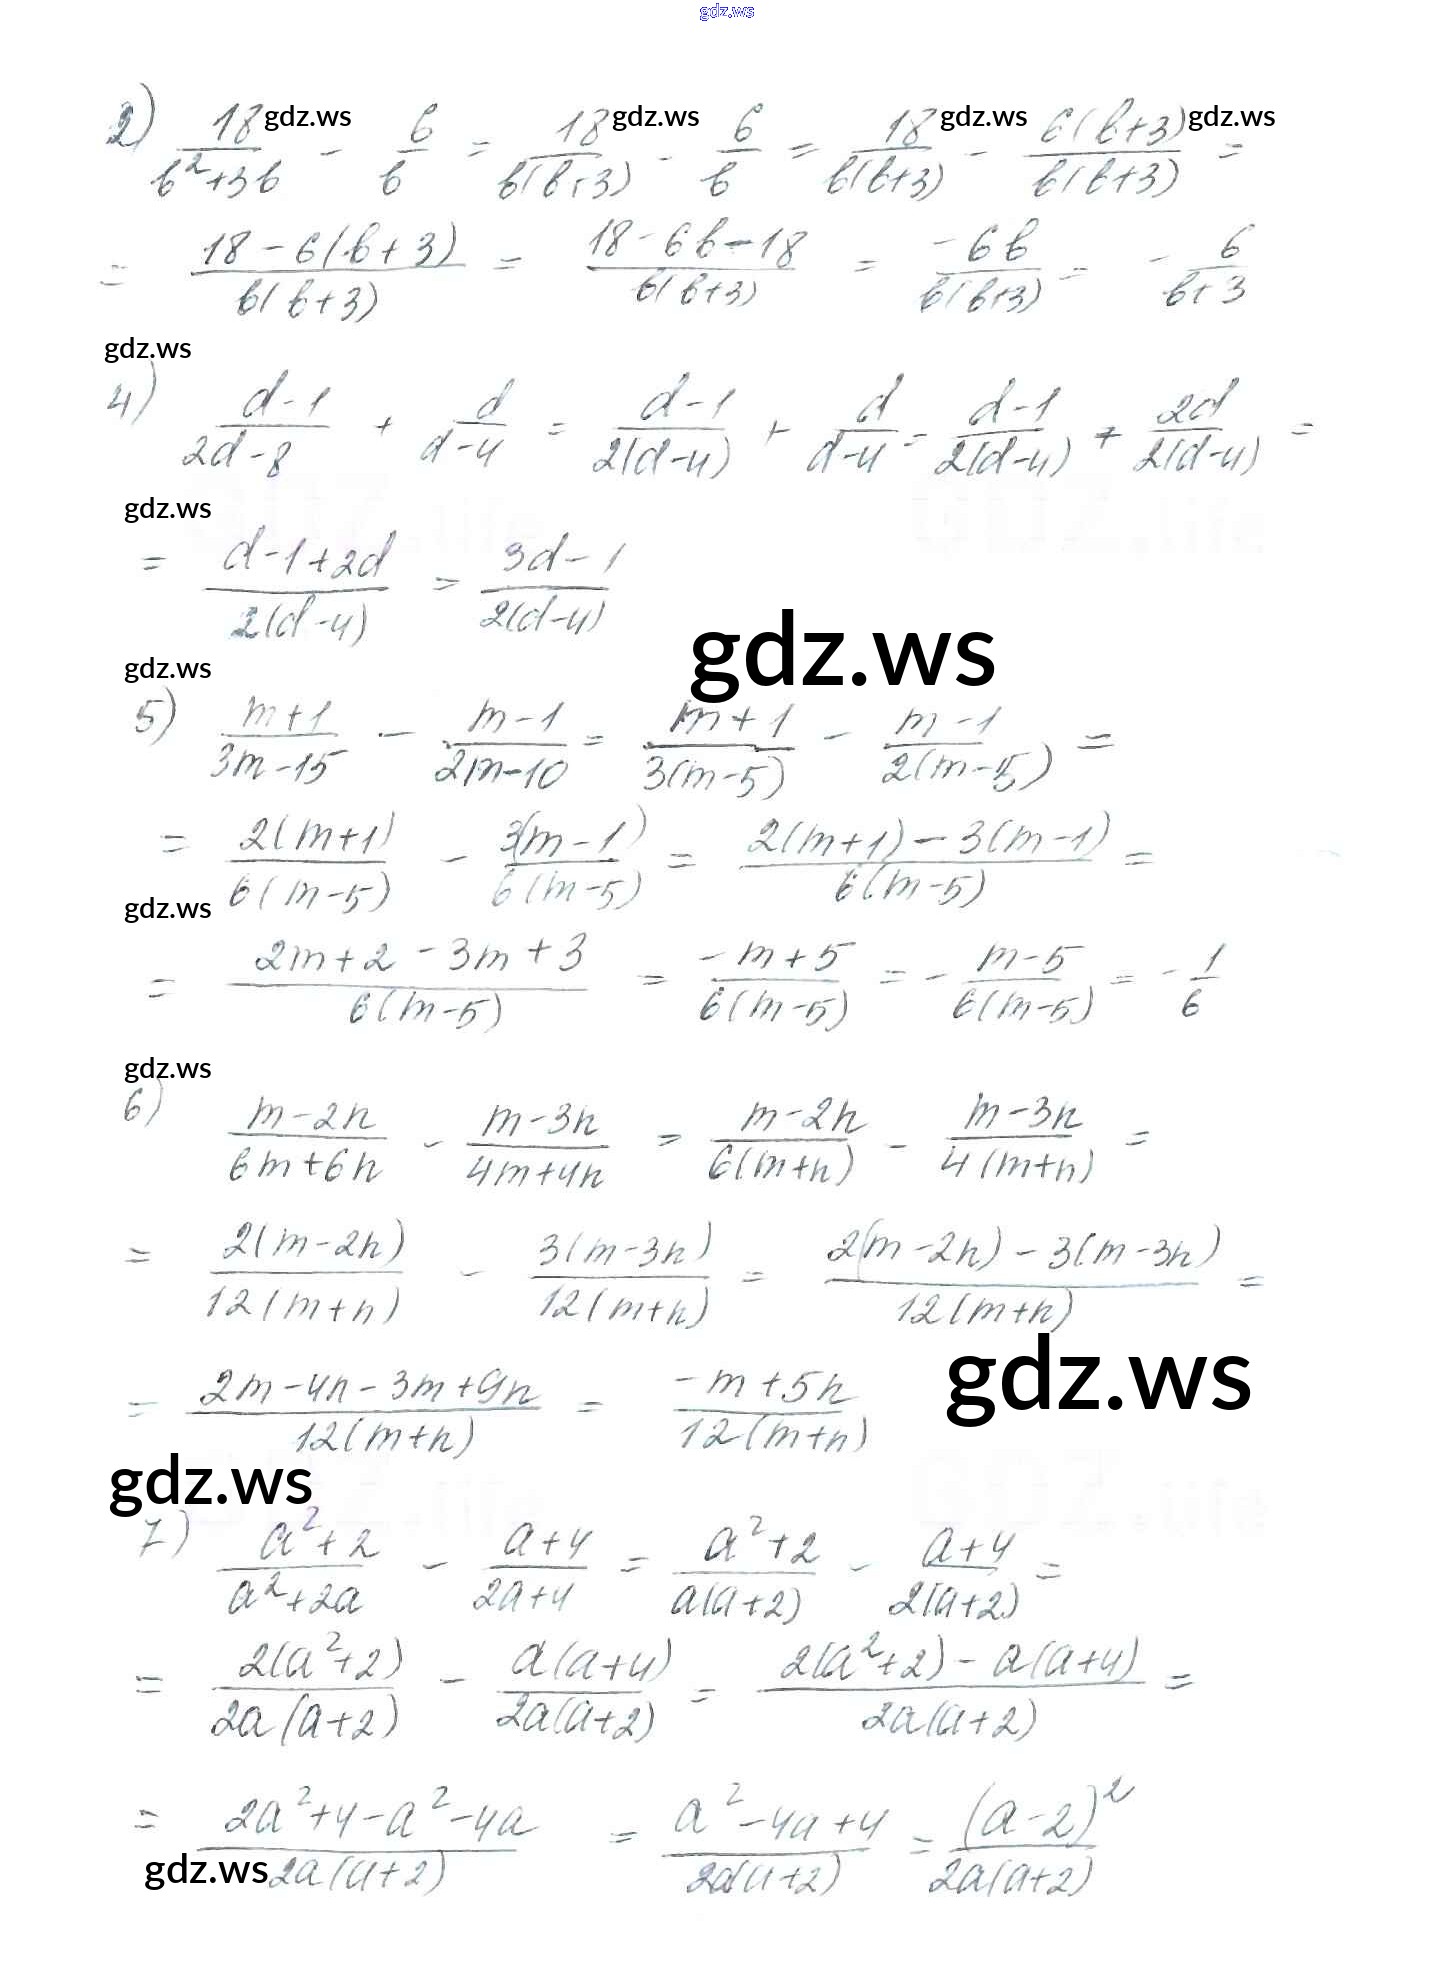 gdz.ws
2) 18/(b²+3b) - 6/b = 18/(b(b+3)) - 6/b = 18/(b(b+3)) - 6(b+3)/(b(b+3)) =
gdz.ws gdz.ws gdz.ws gdz.ws
= (18-6(b+3))/(b(b+3)) = (18-6b-18)/(b(b+3)) = -6b/(b(b+3)) = - 6/(b+3)
gdz.ws
4) (d-1)/(2d-8) + d/(d-4) = (d-1)/(2(d-4)) + d/(d-4) = (d-1)/(2(d-4)) + 2d/(2(d-4)) =
gdz.ws
= (d-1+2d)/(2(d-4)) = (3d-1)/(2(d-4))
gdz.ws
gdz.ws
5) (m+1)/(3m-15) - (m-1)/(2m-10) = (m+1)/(3(m-5)) - (m-1)/(2(m-5)) =
= 2(m+1)/(6(m-5)) - 3(m-1)/(6(m-5)) = (2(m+1)-3(m-1))/(6(m-5)) =
gdz.ws
= (2m+2-3m+3)/(6(m-5)) = (-m+5)/(6(m-5)) = - (m-5)/(6(m-5)) = - 1/6
gdz.ws
6) (m-2n)/(6m+6n) - (m-3n)/(4m+4n) = (m-2n)/(6(m+n)) - (m-3n)/(4(m+n)) =
= 2(m-2n)/(12(m+n)) - 3(m-3n)/(12(m+n)) = (2(m-2n)-3(m-3n))/(12(m+n)) =
gdz.ws
= (2m-4n-3m+9n)/(12(m+n)) = (-m+5n)/(12(m+n))
gdz.ws
7) (a²+2)/(a²+2a) - (a+4)/(2a+4) = (a²+2)/(a(a+2)) - (a+4)/(2(a+2)) =
= 2(a²+2)/(2a(a+2)) - a(a+4)/(2a(a+2)) = (2(a²+2)-a(a+4))/(2a(a+2)) =
= (2a²+4-a²-4a)/(2a(a+2)) = (a²-4a+4)/(2a(a+2)) = (a-2)²/(2a(a+2))
gdz.ws